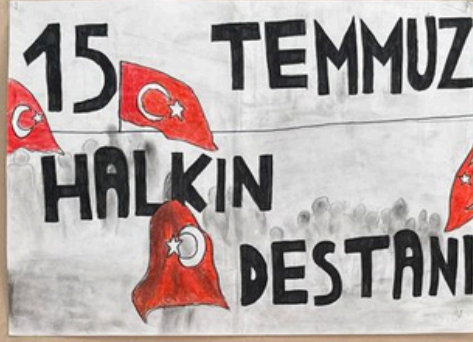 15 TEMMUZ
HALKIN
DESTANI